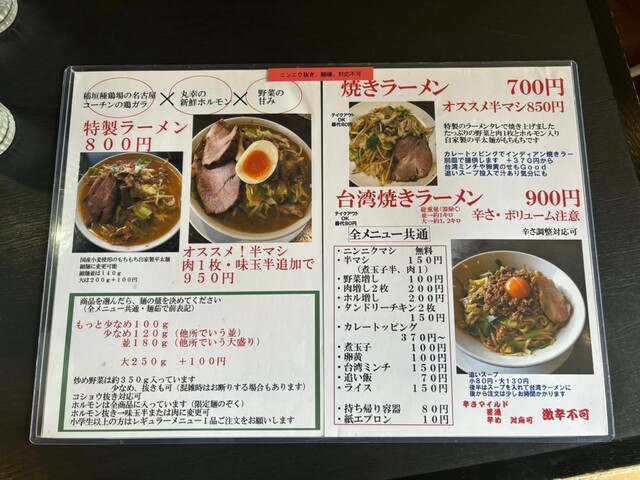 ニンニク抜き、麺硬、対応不可
稲垣種鶏場の名古屋
コーチンの鶏ガラ
×
丸幸の
新鮮ホルモン
×
野菜の
甘み
特製ラーメン
８００円
国産小麦使用のもちもち自家製平太麺
細麺に変更可能
細麺並は１４０ｇ
大は２００ｇ＋１００円
オススメ！半マシ
肉１枚・味玉半追加で
９５０円
商品を選んだら、麺の量を決めてください
（全メニュー共通・麺茹で前表記）
もっと少なめ１００ｇ
少なめ１２０ｇ（他所でいう並）
並１８０ｇ（他所でいう大盛り）
大２５０ｇ ＋１００円
炒め野菜は約３５０ｇ入っています
少なめ、抜きも可（混雑時はお断りする場合もあります）
コショウ抜き対応可
ホルモンは全商品に入っています（限定麺のぞく）
ホルモン抜き→味玉半または肉に変更可
小学生以上の方はレギュラーメニュー１品ご注文をお願いします
焼きラーメン 700円
オススメ半マシ850円
テイクアウト
OK
器代80円
特製のラーメンタレで焼き上げました
たっぷりの野菜と肉１枚とホルモン入り
自家製の平太麺がもちもちです
カレートッピングでインディアン焼きラー
別皿で提供します ＋３７０円から
台湾ミンチや雑賀のせもＧｏｏｄ
追いスープ投入で汁あり気分にも
台湾焼きラーメン 900円
テイクアウト
OK
器代80円
総重量（器除く）
並→約１キロ
大→約１．２キロ
辛さ・ボリューム注意
辛さ調整対応可
全メニュー共通
・ニンニクマシ 無料
・半マシ １５０円
（煮玉子半、肉１）
・野菜増し １００円
・肉増し２枚 ２００円
・ホル増し ２００円
・タンドリーチキン２枚
１５０円
・カレートッピング
３７０円～
・煮玉子 １００円
・卵黄 １００円
・台湾ミンチ １５０円
・追い飯 ７０円
・ライス １５０円
・持ち帰り容器 ８０円
・紙エプロン １０円
追いスープ
小８０円・大１３０円
後半はスープを入れて台湾ラーメンに
後から注文は少しお時間かかります
辛さマイルド
普通
辛め 対応可
激辛不可